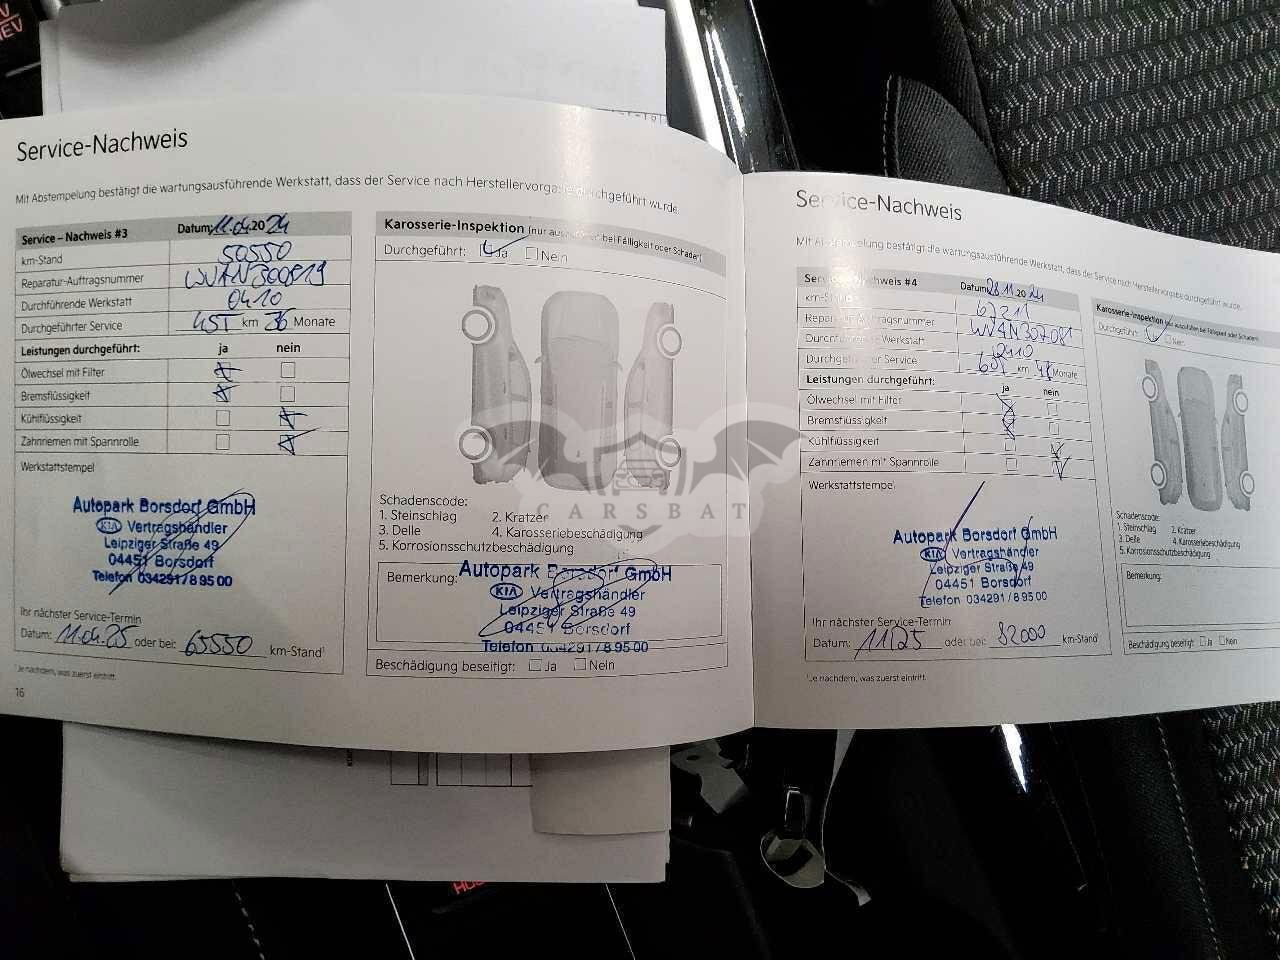 Service-Nachweis
Mit Abstempelung bestätigt die wartungsausführende Werkstatt, dass der Service nach Herstellervorgabe durchgeführt wurde.
Service – Nachweis #3 Datum: 11.04.2024
km-Stand 50550
Reparatur-Auftragsnummer WVAN300819
Durchführende Werkstatt 0410
Durchgeführter Service 45T km 36 Monate
Leistungen durchgeführt: ja nein
Ölwechsel mit Filter
Bremsflüssigkeit
Kühlflüssigkeit
Zahnriemen mit Spannrolle
Werkstattstempel
Autopark Borsdorf GmbH
KIA Vertragshändler
Leipziger Straße 49
04451 Borsdorf
Telefon 034291/89500
Ihr nächster Service-Termin
Datum: 11.04.25 oder bei: 65550 km-Stand¹
¹Je nachdem, was zuerst eintritt.
16
Karosserie-Inspektion (nur auszufüllen bei Fälligkeit oder Schäden)
Durchgeführt: Ja Nein
CARSBAT
Schadenscode:
1. Steinschlag 2. Kratzer
3. Delle 4. Karosseriebeschädigung
5. Korrosionsschutzbeschädigung
Bemerkung:
Autopark Borsdorf GmbH
KIA Vertragshändler
Leipziger Straße 49
04451 Borsdorf
Telefon 034291/89500
Beschädigung beseitigt: Ja Nein
Service-Nachweis
Mit Abstempelung bestätigt die wartungsausführende Werkstatt, dass der Service nach Herstellervorgabe durchgeführt wurde.
Service-Nachweis #4 Datum: 28.11.2024
km-Stand 67211
Reparatur-Auftragsnummer WVAN307081
Durchführende Werkstatt
Durchgeführter Service 60T km 48 Monate
Leistungen durchgeführt: ja nein
Ölwechsel mit Filter
Bremsflüssigkeit
Kühlflüssigkeit
Zahnriemen mit Spannrolle
Werkstattstempel
Autopark Borsdorf GmbH
KIA Vertragshändler
Leipziger Straße 49
04451 Borsdorf
Telefon 034291/89500
Ihr nächster Service-Termin
Datum: 11/25 oder bei: 82000 km-Stand¹
¹Je nachdem, was zuerst eintritt.
Karosserie-Inspektion (nur auszufüllen bei Fälligkeit oder Schäden)
Durchgeführt: Nein
Schadenscode:
1. Steinschlag 2. Kratzer
3. Delle 4. Karosseriebeschädigung
5. Korrosionsschutzbeschädigung
Bemerkung:
Beschädigung beseitigt: Ja Nein